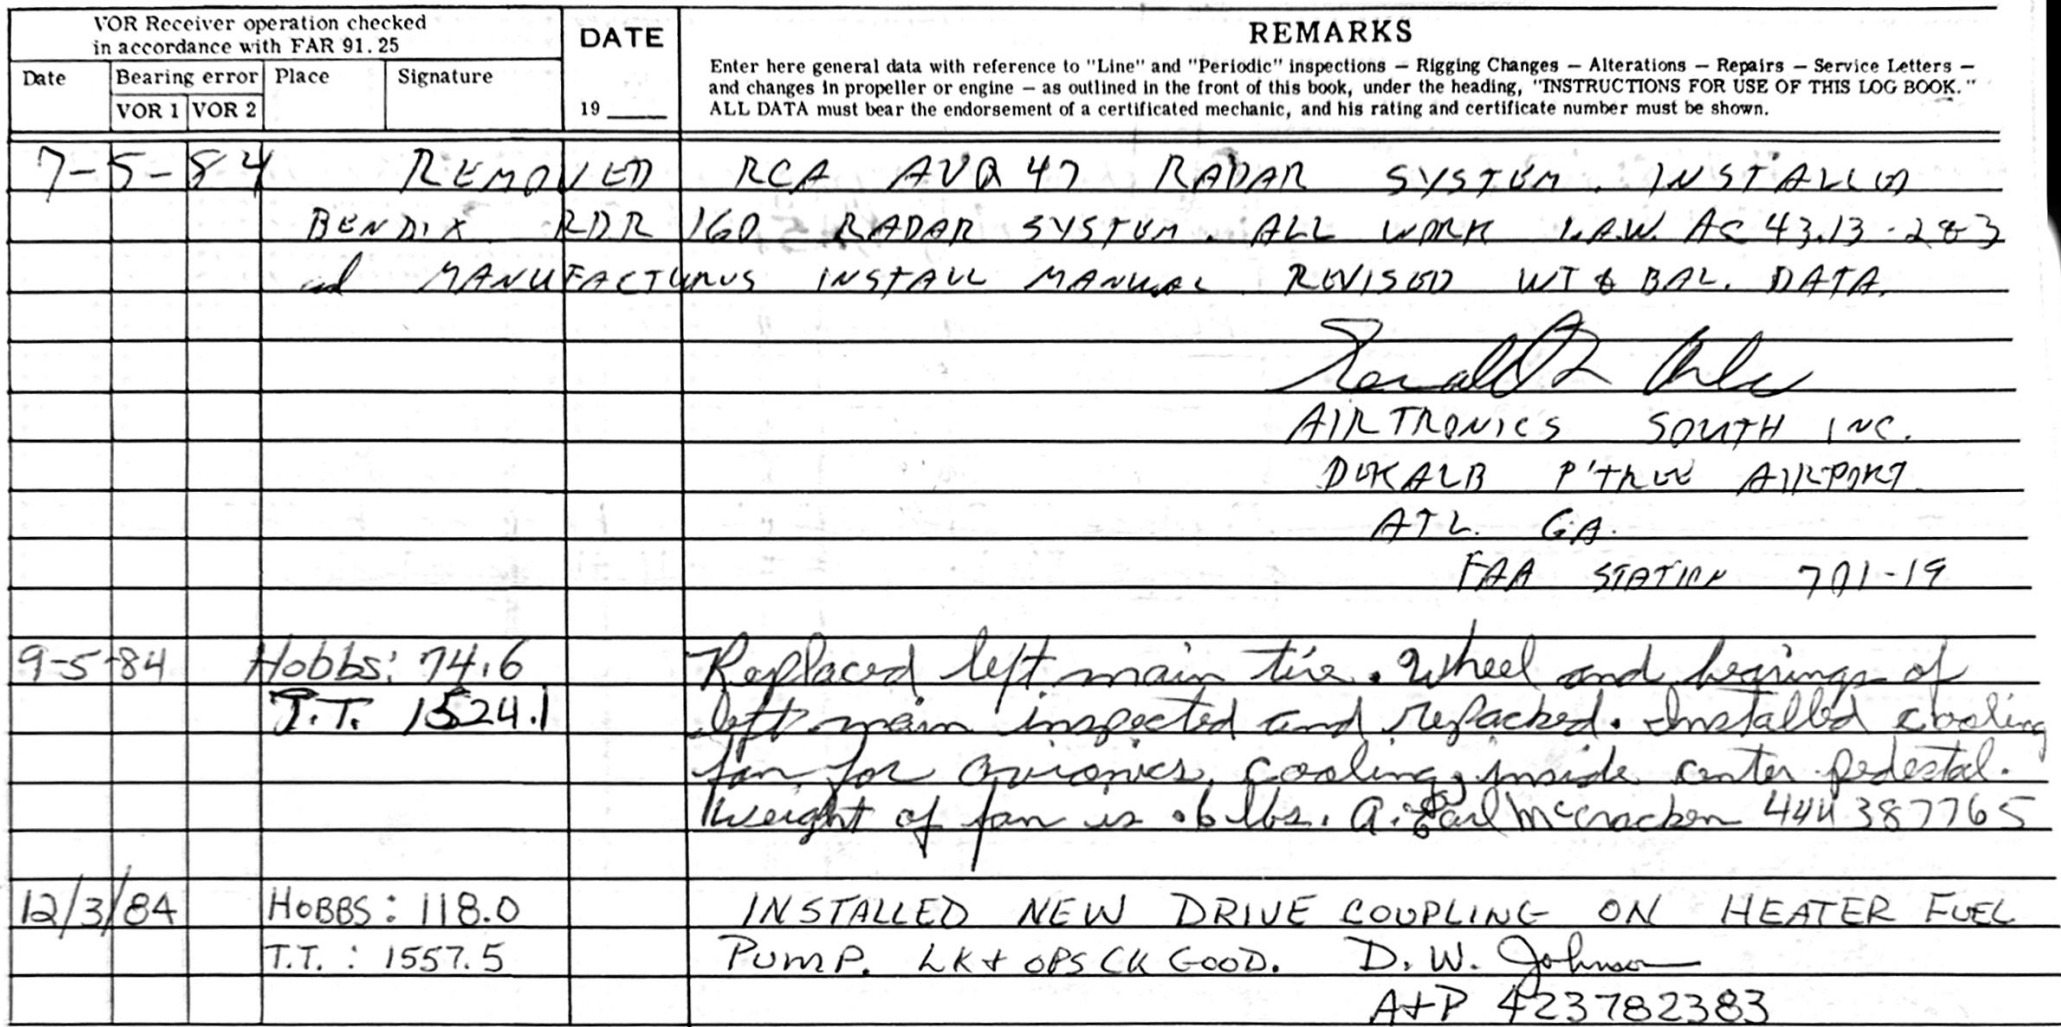 VOR Receiver operation checked
in accordance with FAR 91.25
DATE
REMARKS
Date Bearing error Place Signature
VOR 1 VOR 2
19
Enter here general data with reference to "Line" and "Periodic" inspections — Rigging Changes — Alterations — Repairs — Service Letters —
and changes in propeller or engine — as outlined in the front of this book, under the heading, "INSTRUCTIONS FOR USE OF THIS LOG BOOK."
ALL DATA must bear the endorsement of a certificated mechanic, and his rating and certificate number must be shown.
7-5-84 REMOVED RCA AVQ 47 RADAR SYSTEM. INSTALLED
BENDIX RDR 160 RADAR SYSTEM. ALL WORK I.A.W. AC 43.13-2&3
and MANUFACTURERS INSTALL MANUAL REVISED WT & BAL. DATA.
AIRTRONICS SOUTH INC.
DEKALB P'TREE AIRPORT
ATL. GA.
FAA STATION 701-19
9-5-84 Hobbs: 74.6 Replaced left main tire. Wheel and bearings of
T.T. 1524.1 left main inspected and repacked. Installed cooling
fan for avionics cooling, inside center pedestal.
Weight of fan is .6 lbs. A. Earl McCracken 444387765
12/3/84 HOBBS: 118.0 INSTALLED NEW DRIVE COUPLING ON HEATER FUEL
T.T.: 1557.5 PUMP. LK + OPS CK GOOD. D.W. Johnson
A+P 423782383